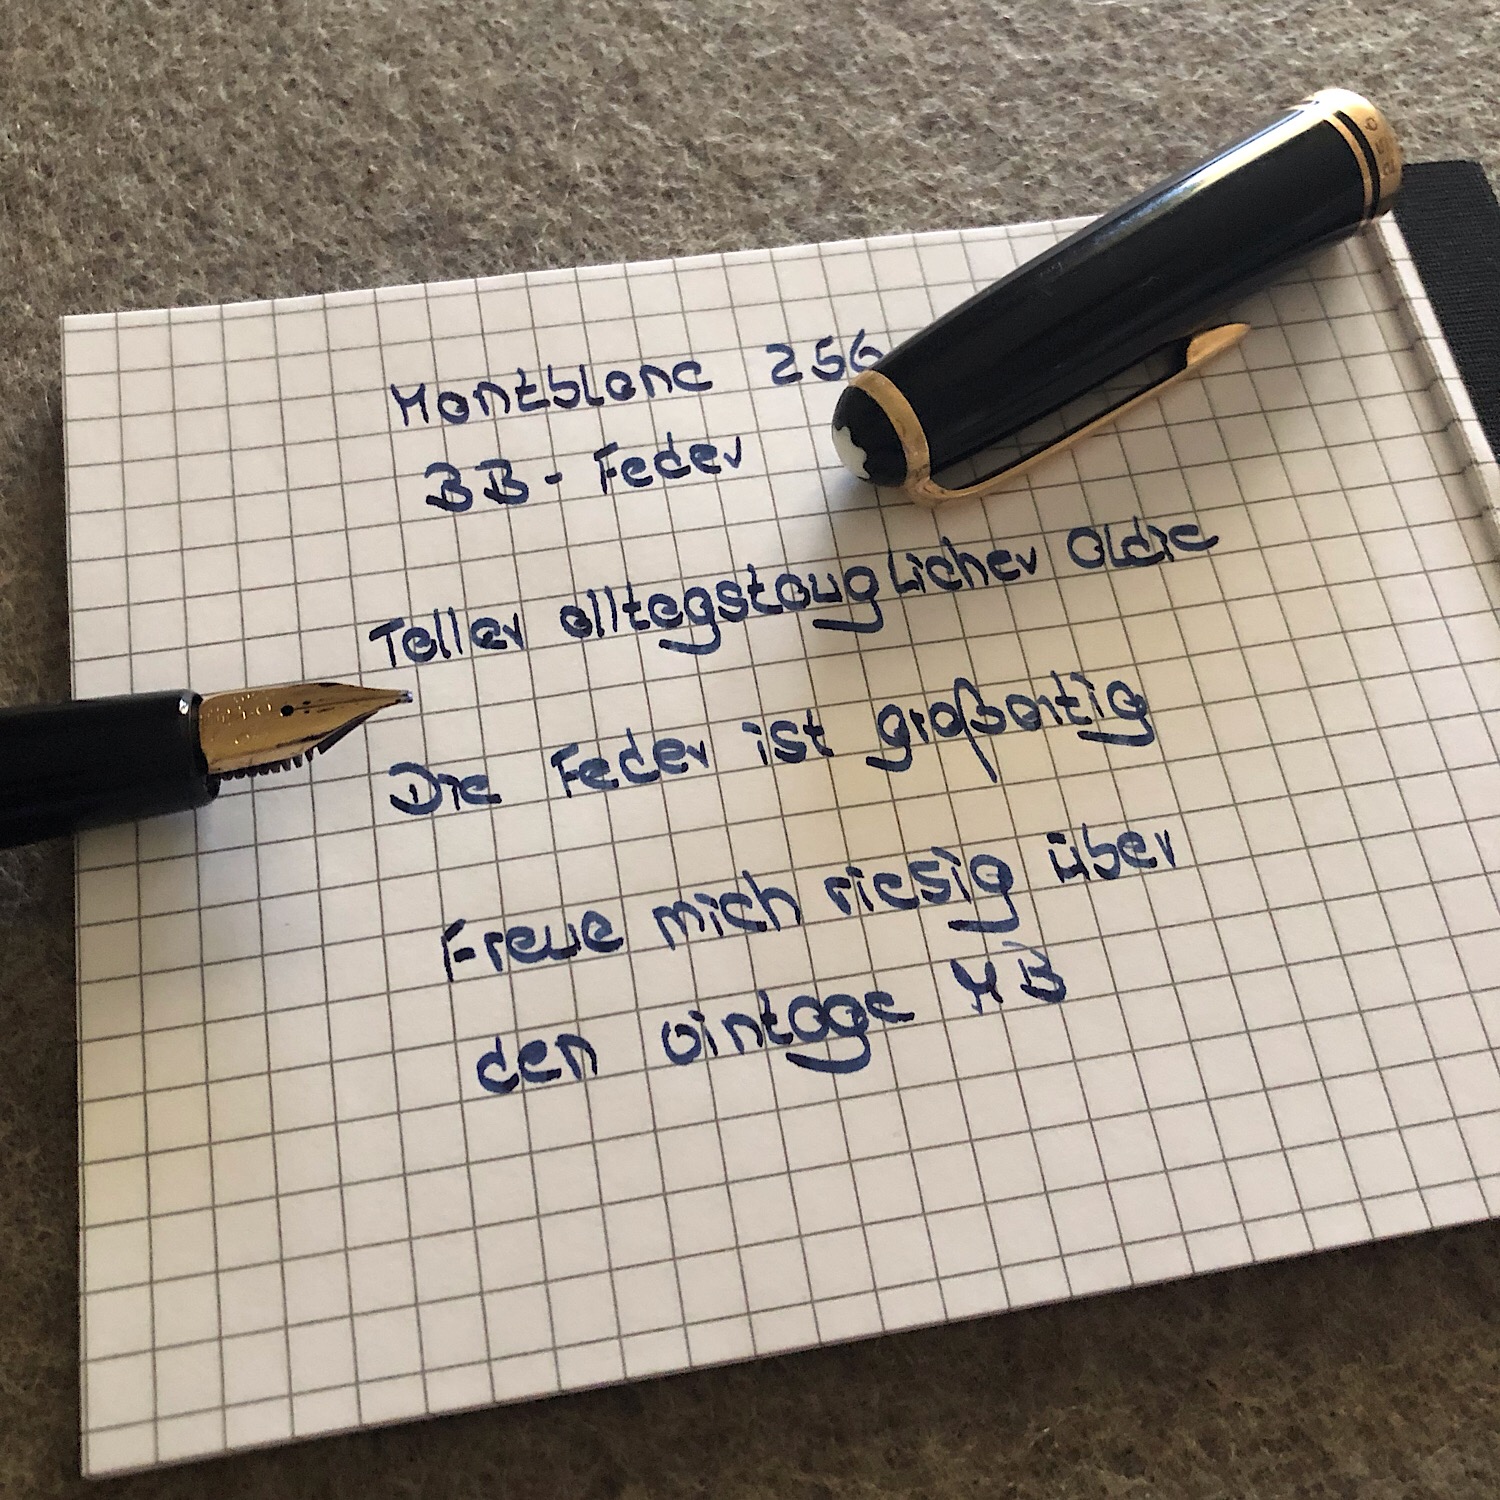 Montblanc 256
BB - Feder
Toller alltagstauglicher Oldie
Die Feder ist großartig
Freue mich riesig über
den vintage MB